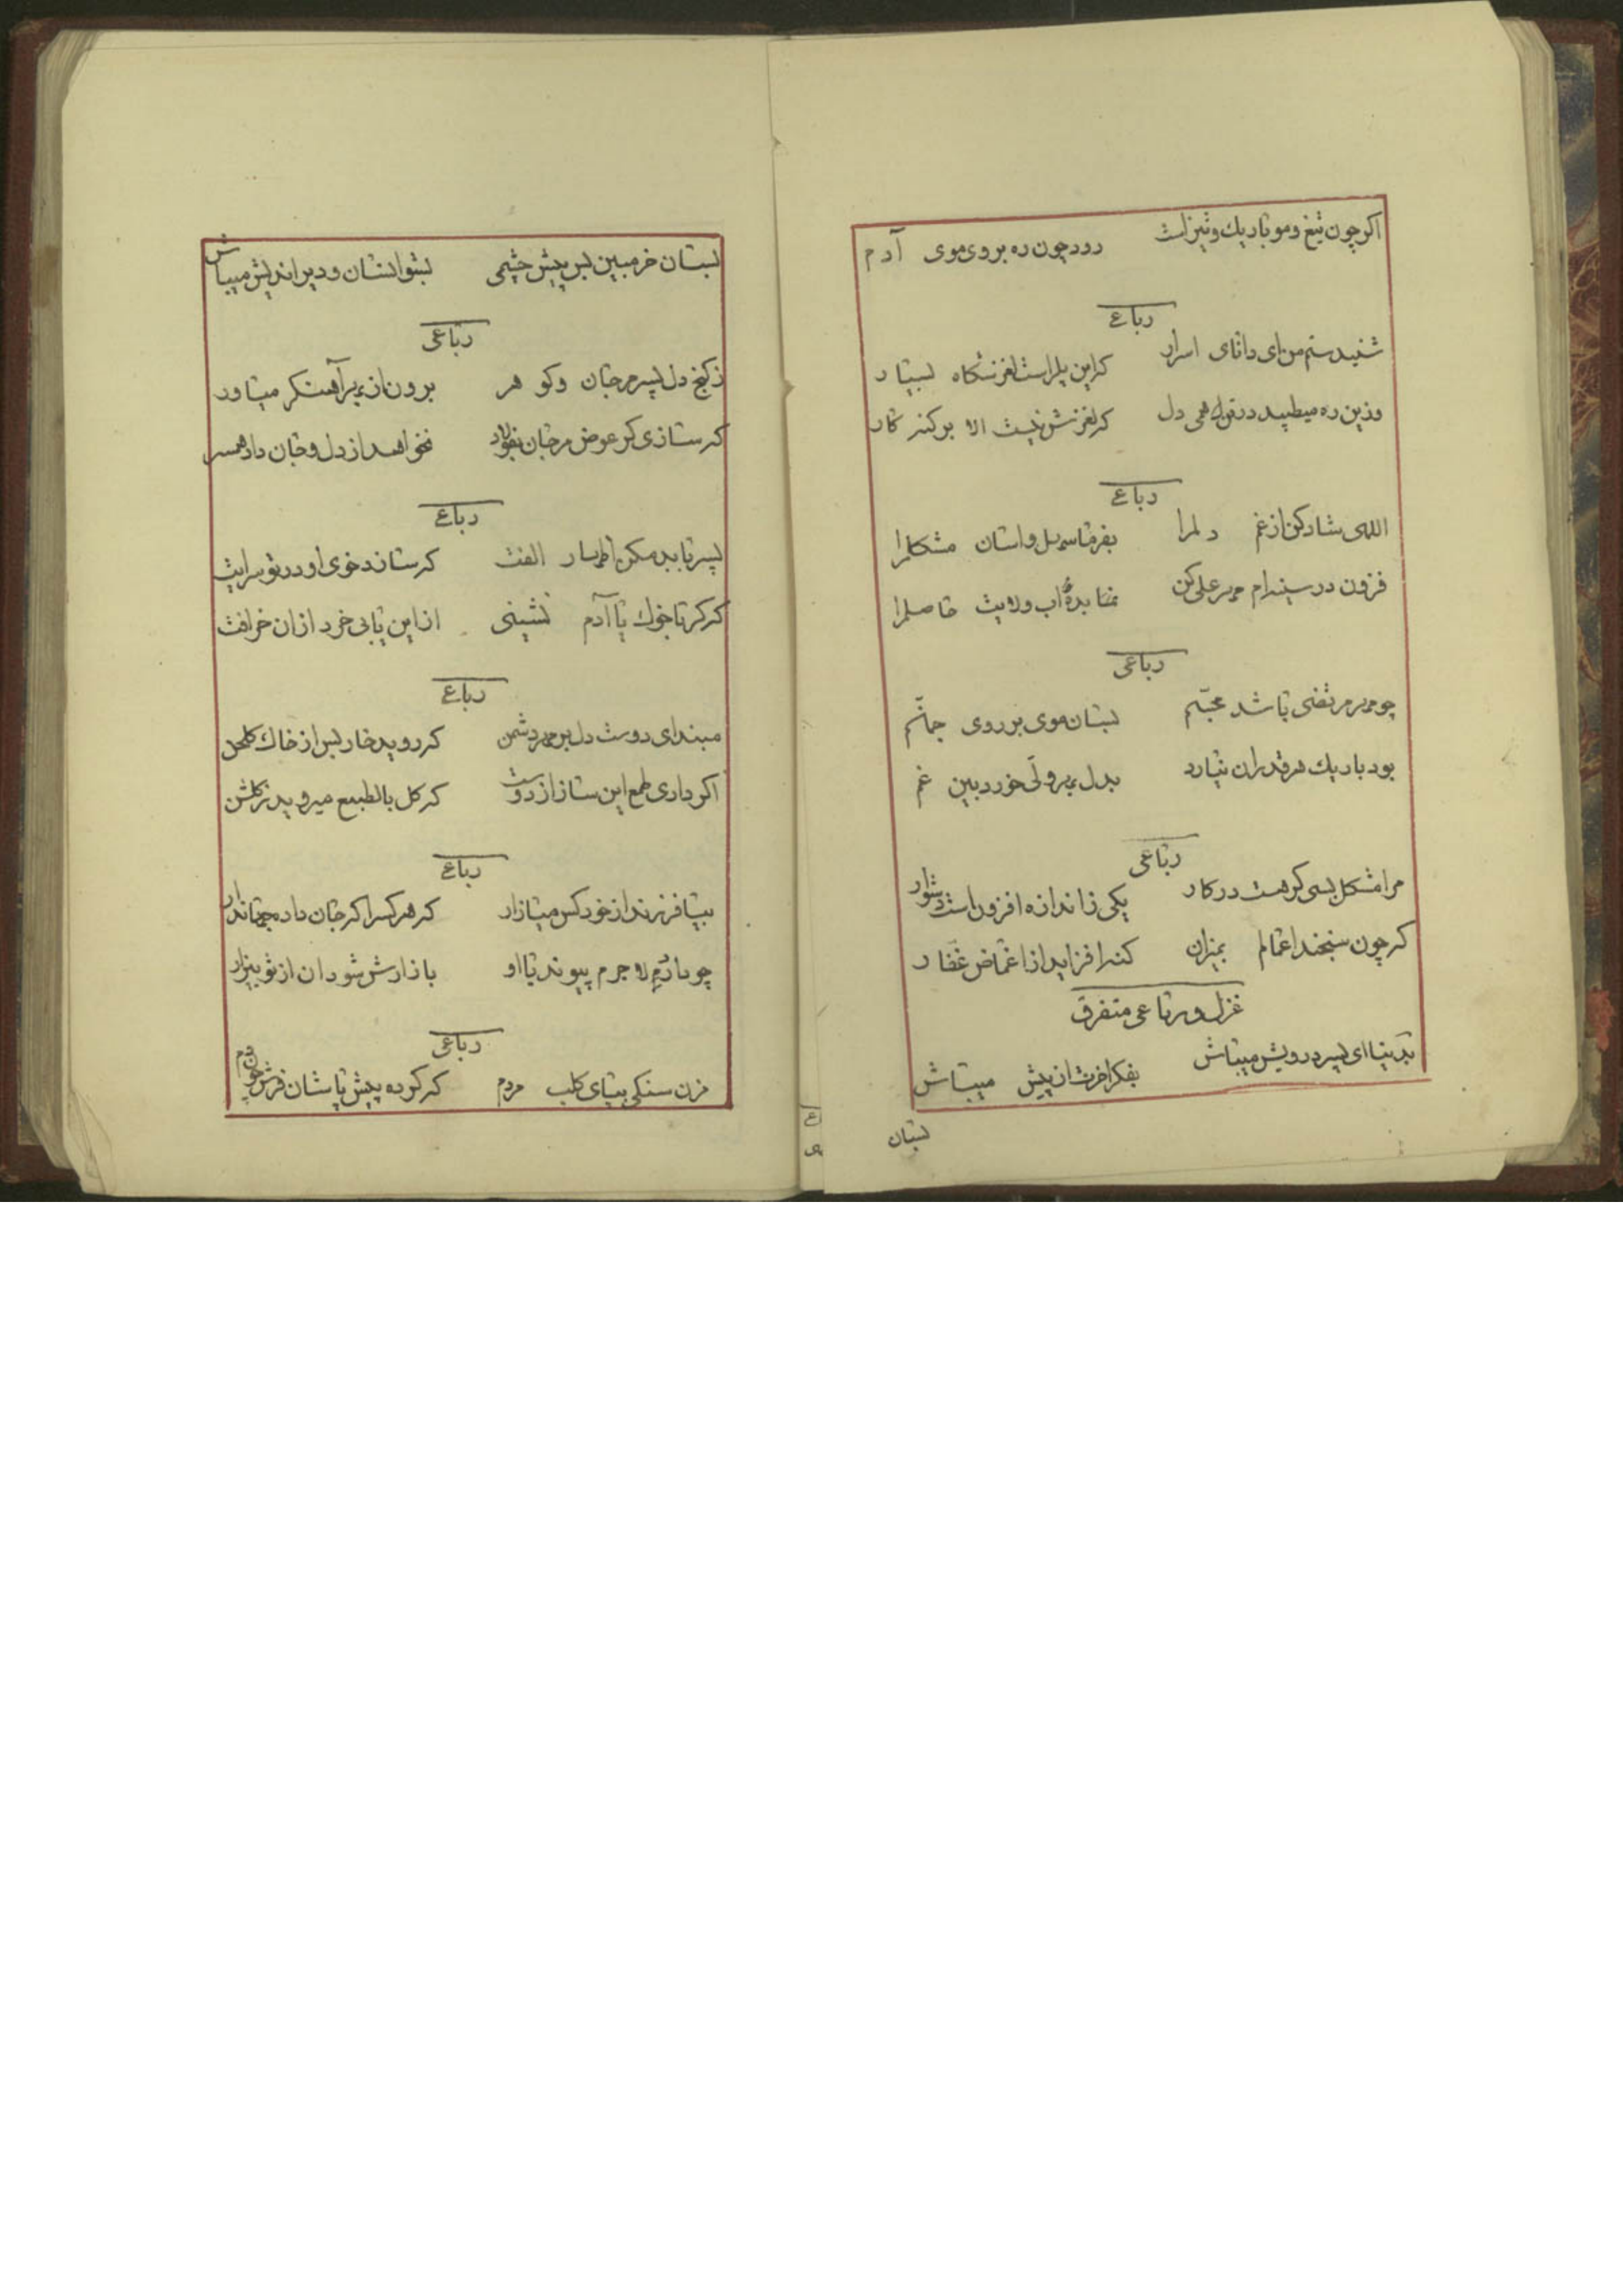 اکر چون تیغ و مو باریك و تیز است رود چون ره بروی موی آدم
رباعی
شنیدستم من ای دانای اسرار که این پل راست لغزشکاه بسیار
وزین ره میطپید در دل که لغزش نیست الا بر کنه کار
رباعی
الهی شاد کن از غم دلمرا بفرما سهل و اسان مشکلمرا
فزون در سینه‌ام مهر علی کن بده آب ولایت حاصلمرا
رباعی
چو مهر مرتضی باشد محبّم بسان موی بر روی جانم
بود باریك هر قدر ان نیارد بدل پیرو خورد بین غم
رباعی
مرا مشکل بسی کر هست در کار یکی زاندازه افزون است دشوار
که چون سنجند اعمالم بمیزان کنه افزاید از اغماض غفار
غزل و رباعی متفرق
بدنیا ای پسر درویش میباش بفکر اخرت از پیش میباش
بسان
بسان خر مبین بس پیش چشمی بشو انسان و دیر اندیش میباش
رباعی
ز کنج دل پسر مرجان و کوهر برون از بهر آهنکر میاور
که سازی کر عوض مرجان بفولاد نخواهد از دل و جان داد همسر
رباعی
پسر با بد مکن اظهار الفت که سازد خوی او در تو سرایت
که کر با خوك یا آدم نشینی از این یابی خرد از ان خرافت
رباعی
مبند ای دوست دل بر مهر دشمن که روید خار بس از خاك کلخن
اکر داری طمع این ساز از دوست که کل بالطبع میروید ز کلشن
رباعی
بیا فرزند از خود کس میازار که هر کسرا که جان داد جهاندار
چو دارد لاجرم پیوند با او بازارش شود ان از تو بیزار
رباعی
مزن سنکی بپای کلب مردم که کرده پیش پاشان فرش خود دم